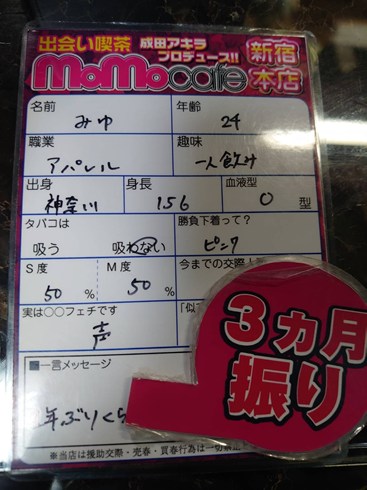 出会い喫茶 成田アキラ
プロデュース!!
MoMocafe 新宿本店
名前 みゆ 年齢 24
職業 アパレル 趣味 一人飲み
出身 神奈川 身長 156 血液型 O 型
タバコは 吸う 吸わない 勝負下着って? ピンク
S度 50 % M度 50 % 今までの交際人
実は○○フェチです 声 「似
3ヵ月
振り
■一言メッセージ
年ぶりくら
※当店は援助交際・売春・買春行為は一切禁止